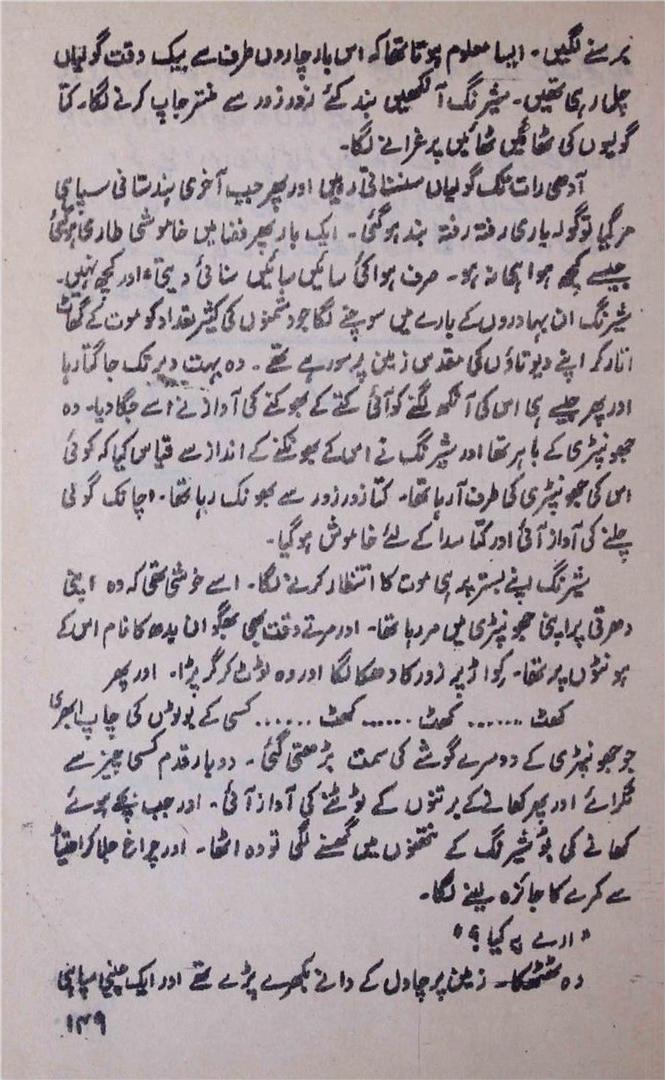 برسنے لگیں۔ ایسا معلوم ہوتا تھا کہ اس بار چاروں طرف سے بیک وقت گولیاں
چل رہی تھیں۔ شیرنگ آنکھیں بند کئے زور زور سے منتر جاپ کرنے لگا۔ کتا
گولیوں کی ٹھائیں ٹھائیں پر غرانے لگا۔
آدھی رات تک گولیاں سنسناتی رہیں اور پھر جب آخری ہندستانی سپاہی
مر گیا تو گولہ باری رفتہ رفتہ بند ہو گئی۔ ایک بار پھر فضا میں خاموشی طاری ہو گئی
جیسے کچھ ہوا ہی نہ ہو۔ صرف ہوا کی سائیں سائیں سنائی دیتی، اور کچھ نہیں۔
شیرنگ ان بہادروں کے بارے میں سوچنے لگا جو دشمنوں کی کثیر تعداد کو موت کے گھاٹ
اتار کر اپنے دیوتاؤں کی مقدس زمین پر سو رہے تھے۔ وہ بہت دیر تک جاگتا رہا
اور پھر جیسے ہی اس کی آنکھ لگنے کو آئی کتے کے بھوکنے کی آواز نے اسے جگا دیا۔ وہ
جھونپڑی کے باہر تھا اور شیرنگ نے اس کے بھونکنے کے انداز سے قیاس کیا کہ کوئی
اس کی جھونپڑی کی طرف آ رہا تھا۔ کتا زور زور سے بھونک رہا تھا۔ اچانک گولی
چلنے کی آواز آئی اور کتا سدا کے لئے خاموش ہو گیا۔
شیرنگ اپنے بستر پر ہی موت کا انتظار کرنے لگا۔ اسے خوشی تھی کہ وہ اپنی
دھرتی پر اپنی جھونپڑی میں مر رہا تھا۔ اور مرتے وقت بھی بھگوان بدھ کا نام اس کے
ہونٹوں پر تھا۔ کواڑ پر زور کا دھکا لگا اور وہ ٹوٹ کر گر پڑا۔ اور پھر
کھٹ ...... کھٹ ...... کھٹ ...... کسی کے بوٹوں کی چاپ ابھری
جو جھونپڑی کے دوسرے گوشے کی سمت بڑھتی گئی۔ دو بار قدم کسی چیز سے
ٹکرائے اور پھر کھانے کے برتنوں کے ٹوٹنے کی آواز آئی۔ اور جب پکے ہوئے
کھانے کی بو شیرنگ کے نتھنوں میں گھسنے لگی تو وہ اٹھا۔ اور چراغ جلا کر احتیاط
سے کمرے کا جائزہ لینے لگا۔
"ارے یہ کیا؟"
وہ ٹھٹھکا۔ زمین پر چاول کے دانے بکھرے پڑے تھے اور ایک چینی سپاہی
۱۴۹